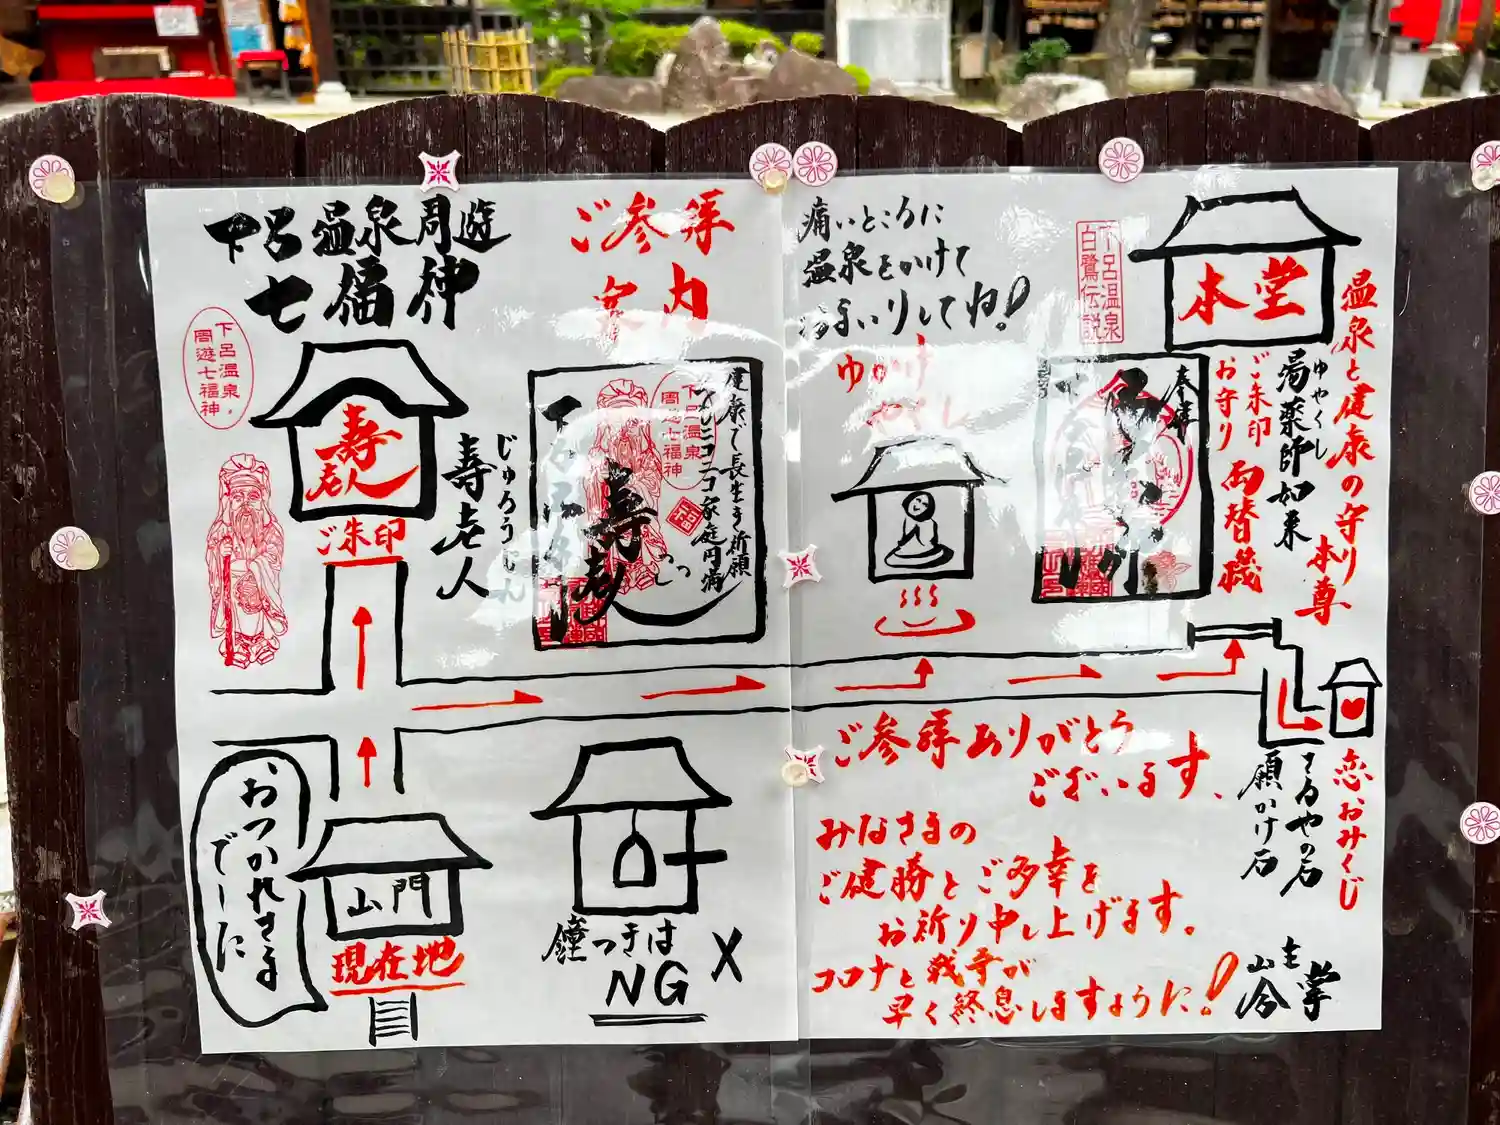 下呂温泉周遊
七福神
下呂温泉
周遊七福神
寿老人
ご朱印
じゅろうじん
寿老人
ご参拝
案内
健康で長生き祈願
ニコニコ家庭円満
下呂温泉
周遊七福神
福
寿老人
痛いところに
温泉をかけて
お手いりしてね!
ゆかけ
やくし
下呂温泉
白鷺伝説
奉拝
本堂
温泉と健康の守り本尊
ゆやくし
湯薬師如来
ご朱印
お守り
両替機
おつかれさま
でーに
山門
現在地
鐘つきは
NG X
ご参拝ありがとう
ございます、
みなさまの
ご健勝とご多幸を
お祈り申し上げます。
コロナと戦争が
早く終息しますように!
恋おみくじ
さるやの石
願かけ石